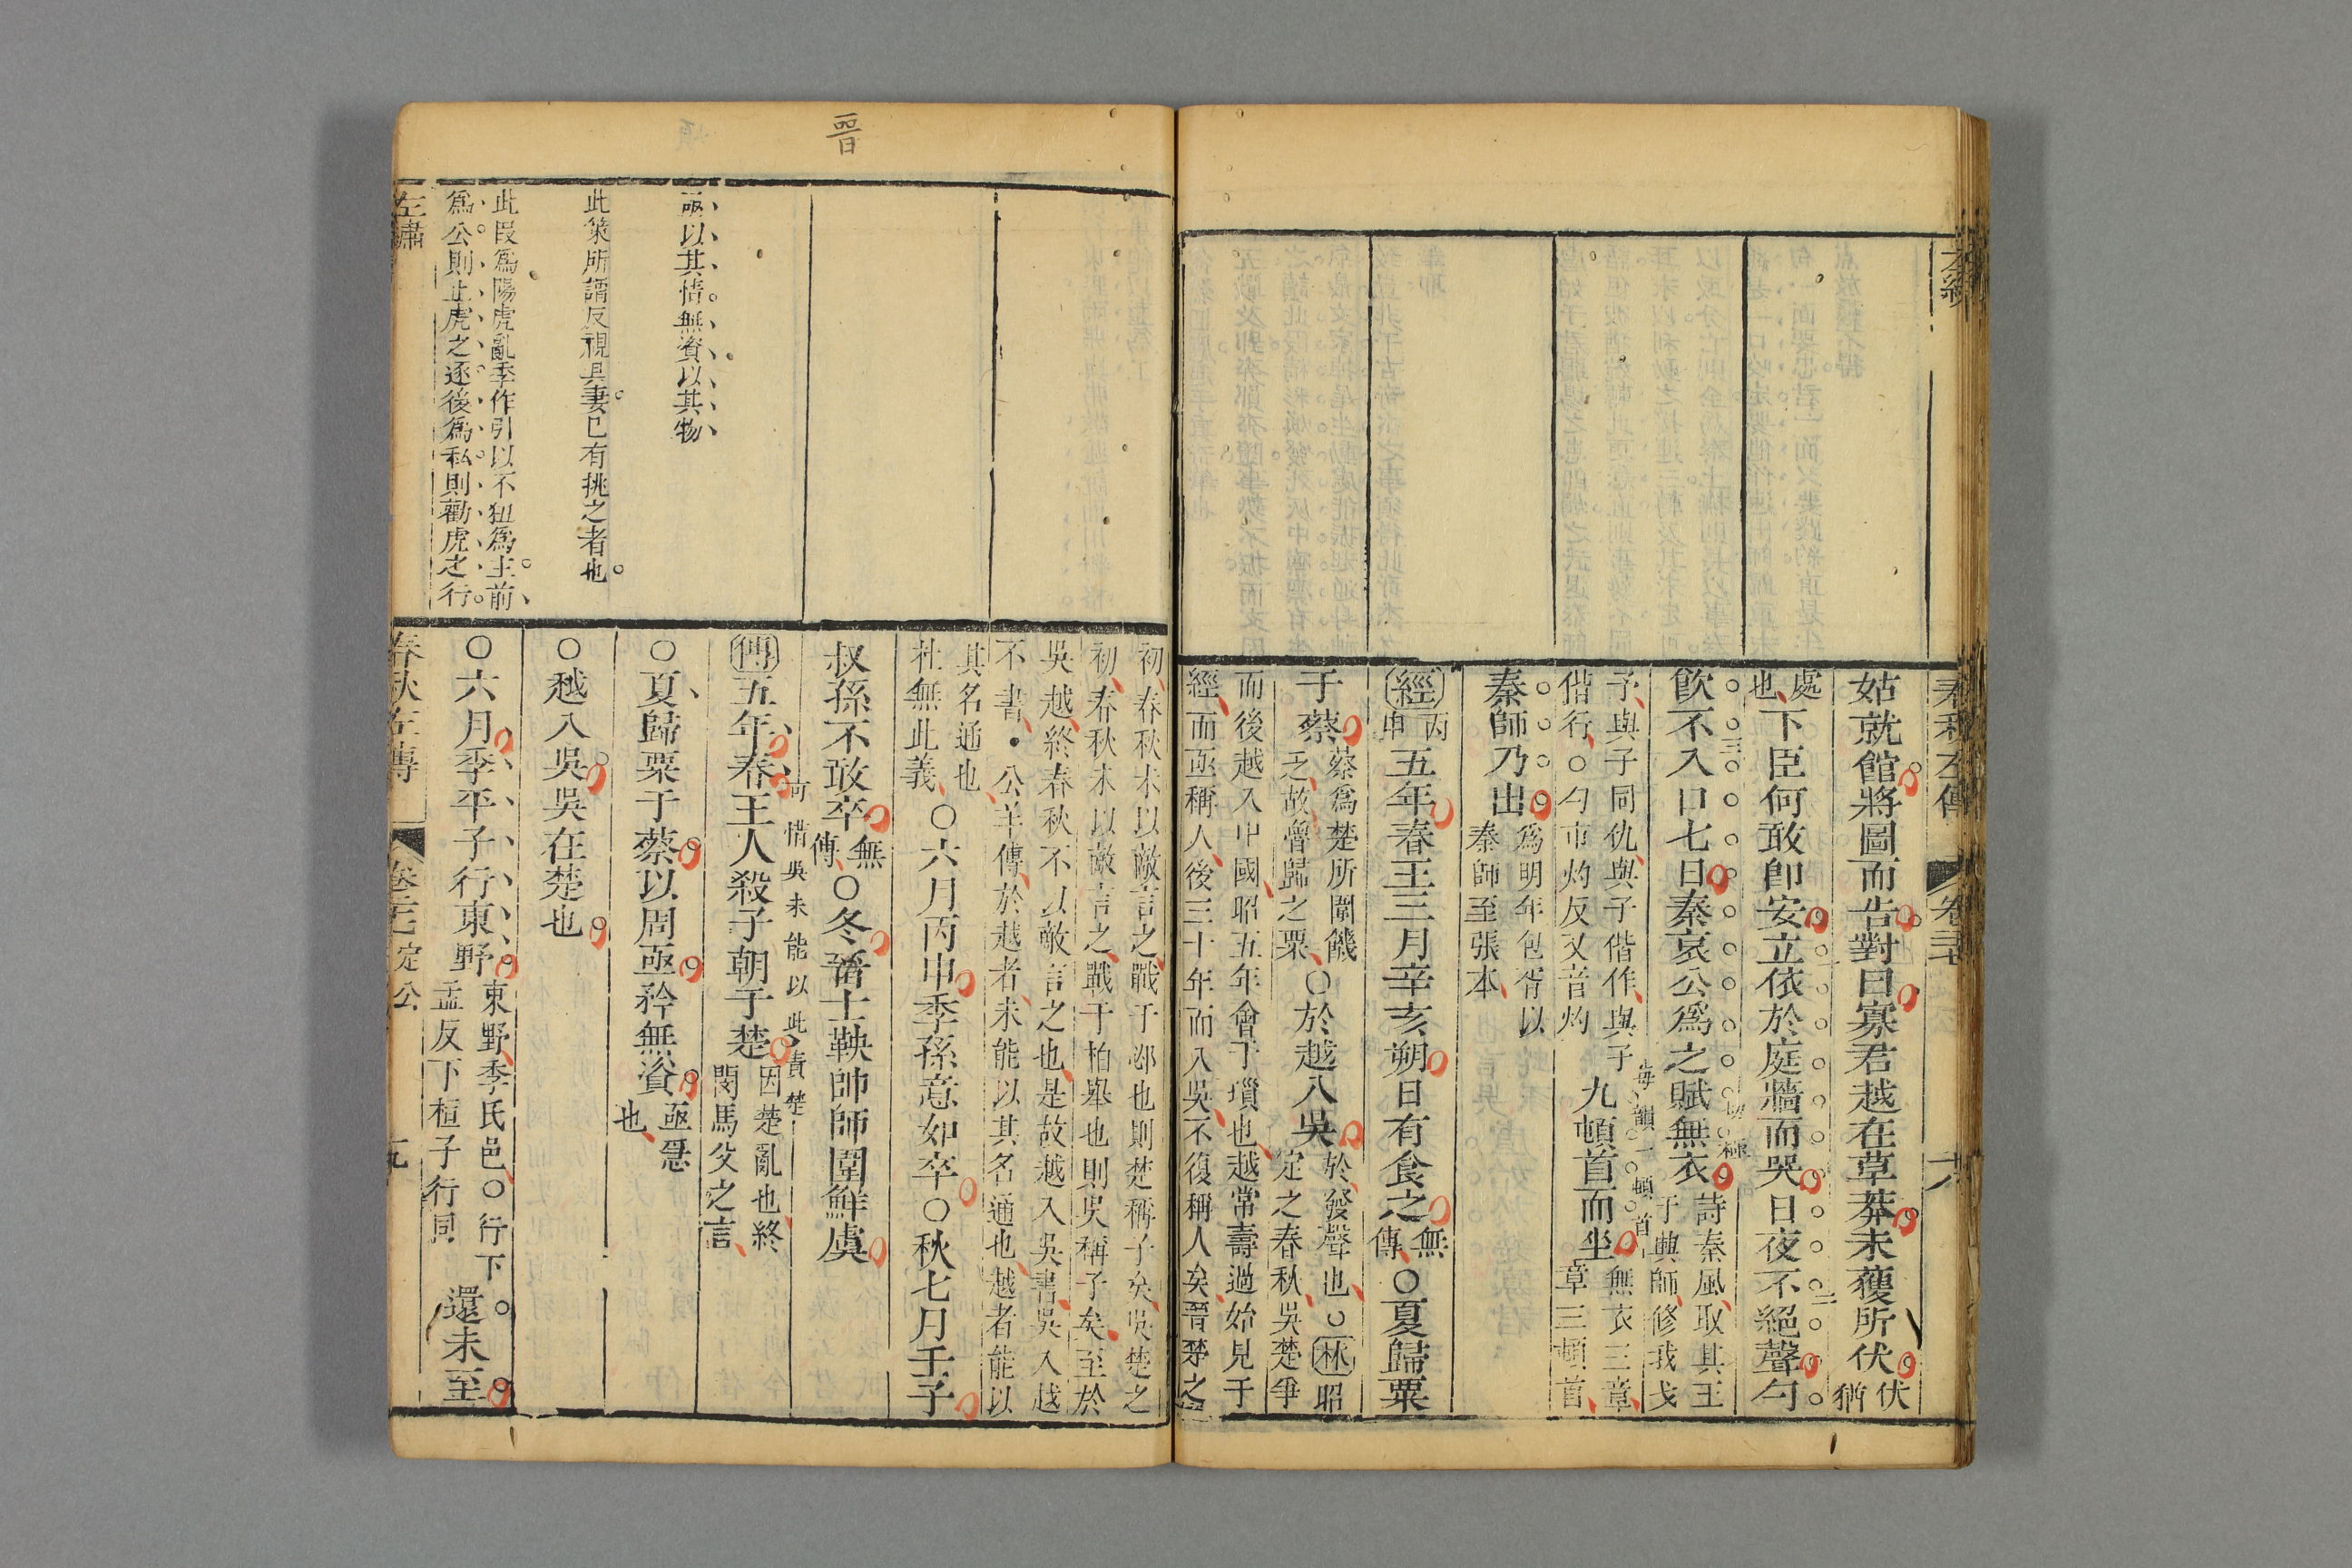 春秋左傳
姑就館將圖而告對曰寡君越在草莽未獲所伏伏猶
處也下臣何敢即安立依於庭牆而哭日夜不絕聲勺
飲不入口七日秦哀公爲之賦無衣詩秦風取其王于興師修我戈
子與子同仇與子偕作與子偕行○勺市灼反又音灼九頓首而坐無衣三章章三頓首
每韻一頓首
秦師乃出爲明年包胥以秦師至張本
經丙申五年春王三月辛亥朔日有食之無傳○夏歸粟
于蔡蔡爲楚所圍饑乏故魯歸之粟○於越入吳於發聲也○林昭定之春秋吳楚爭
而後越入中國昭五年會于瑣也越常壽過始見于
經而亟稱人後三十年而入吳不復稱人矣晉楚之
初春秋未以敵言之戰于邲也則楚稱子矣吳楚之
初春秋未以敵言之戰于柏舉也則吳稱子矣至於
吳越終春秋不以敵言之也是故越入吳書吳入越
不書公羊傳於越者未能以其名通也越者能以
其名通也杜無此義○六月丙申季孫意如卒○秋七月壬子
叔孫不敢卒無傳○冬晉士鞅帥師圍鮮虞
傳五年春王人殺子朝于楚因楚亂也終閔馬父之言
可惜吳未能以此責楚
○夏歸粟于蔡以周亟矜無資亟急也
○越入吳吳在楚也
○六月季平子行東野東野季氏邑○行下孟反下桓子行同還未至
晉
亟以其情無資以其物
此策所謂反視其妻已有挑之者也
此段爲陽虎亂季作引以不狃爲主前
爲公則止虎之逐後爲私則勸虎之行
左繡
春秋左傳
定公